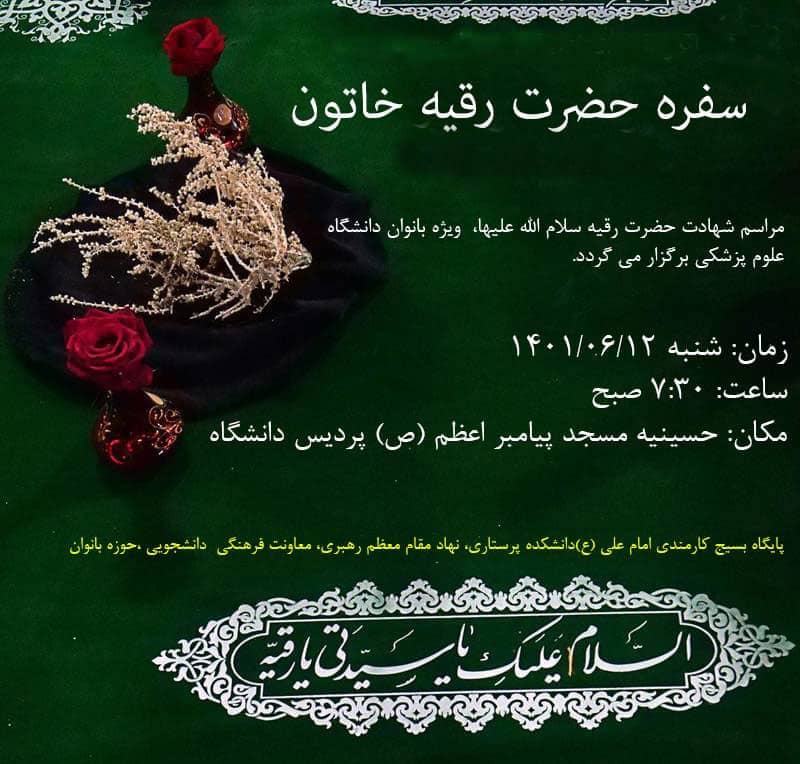 سفره حضرت رقیه خاتون
مراسم شهادت حضرت رقیه سلام الله علیها، ویژه بانوان دانشگاه
علوم پزشکی برگزار می گردد.
زمان: شنبه ۱۴۰۱/۰۶/۱۲
ساعت: ۷:۳۰ صبح
مکان: حسینیه مسجد پیامبر اعظم (ص) پردیس دانشگاه
پایگاه بسیج کارمندی امام علی (ع)دانشکده پرستاری، نهاد مقام معظم رهبری، معاونت فرهنگی دانشجویی ،حوزه بانوان
السلام علیک یا سیدتی یا رقیه